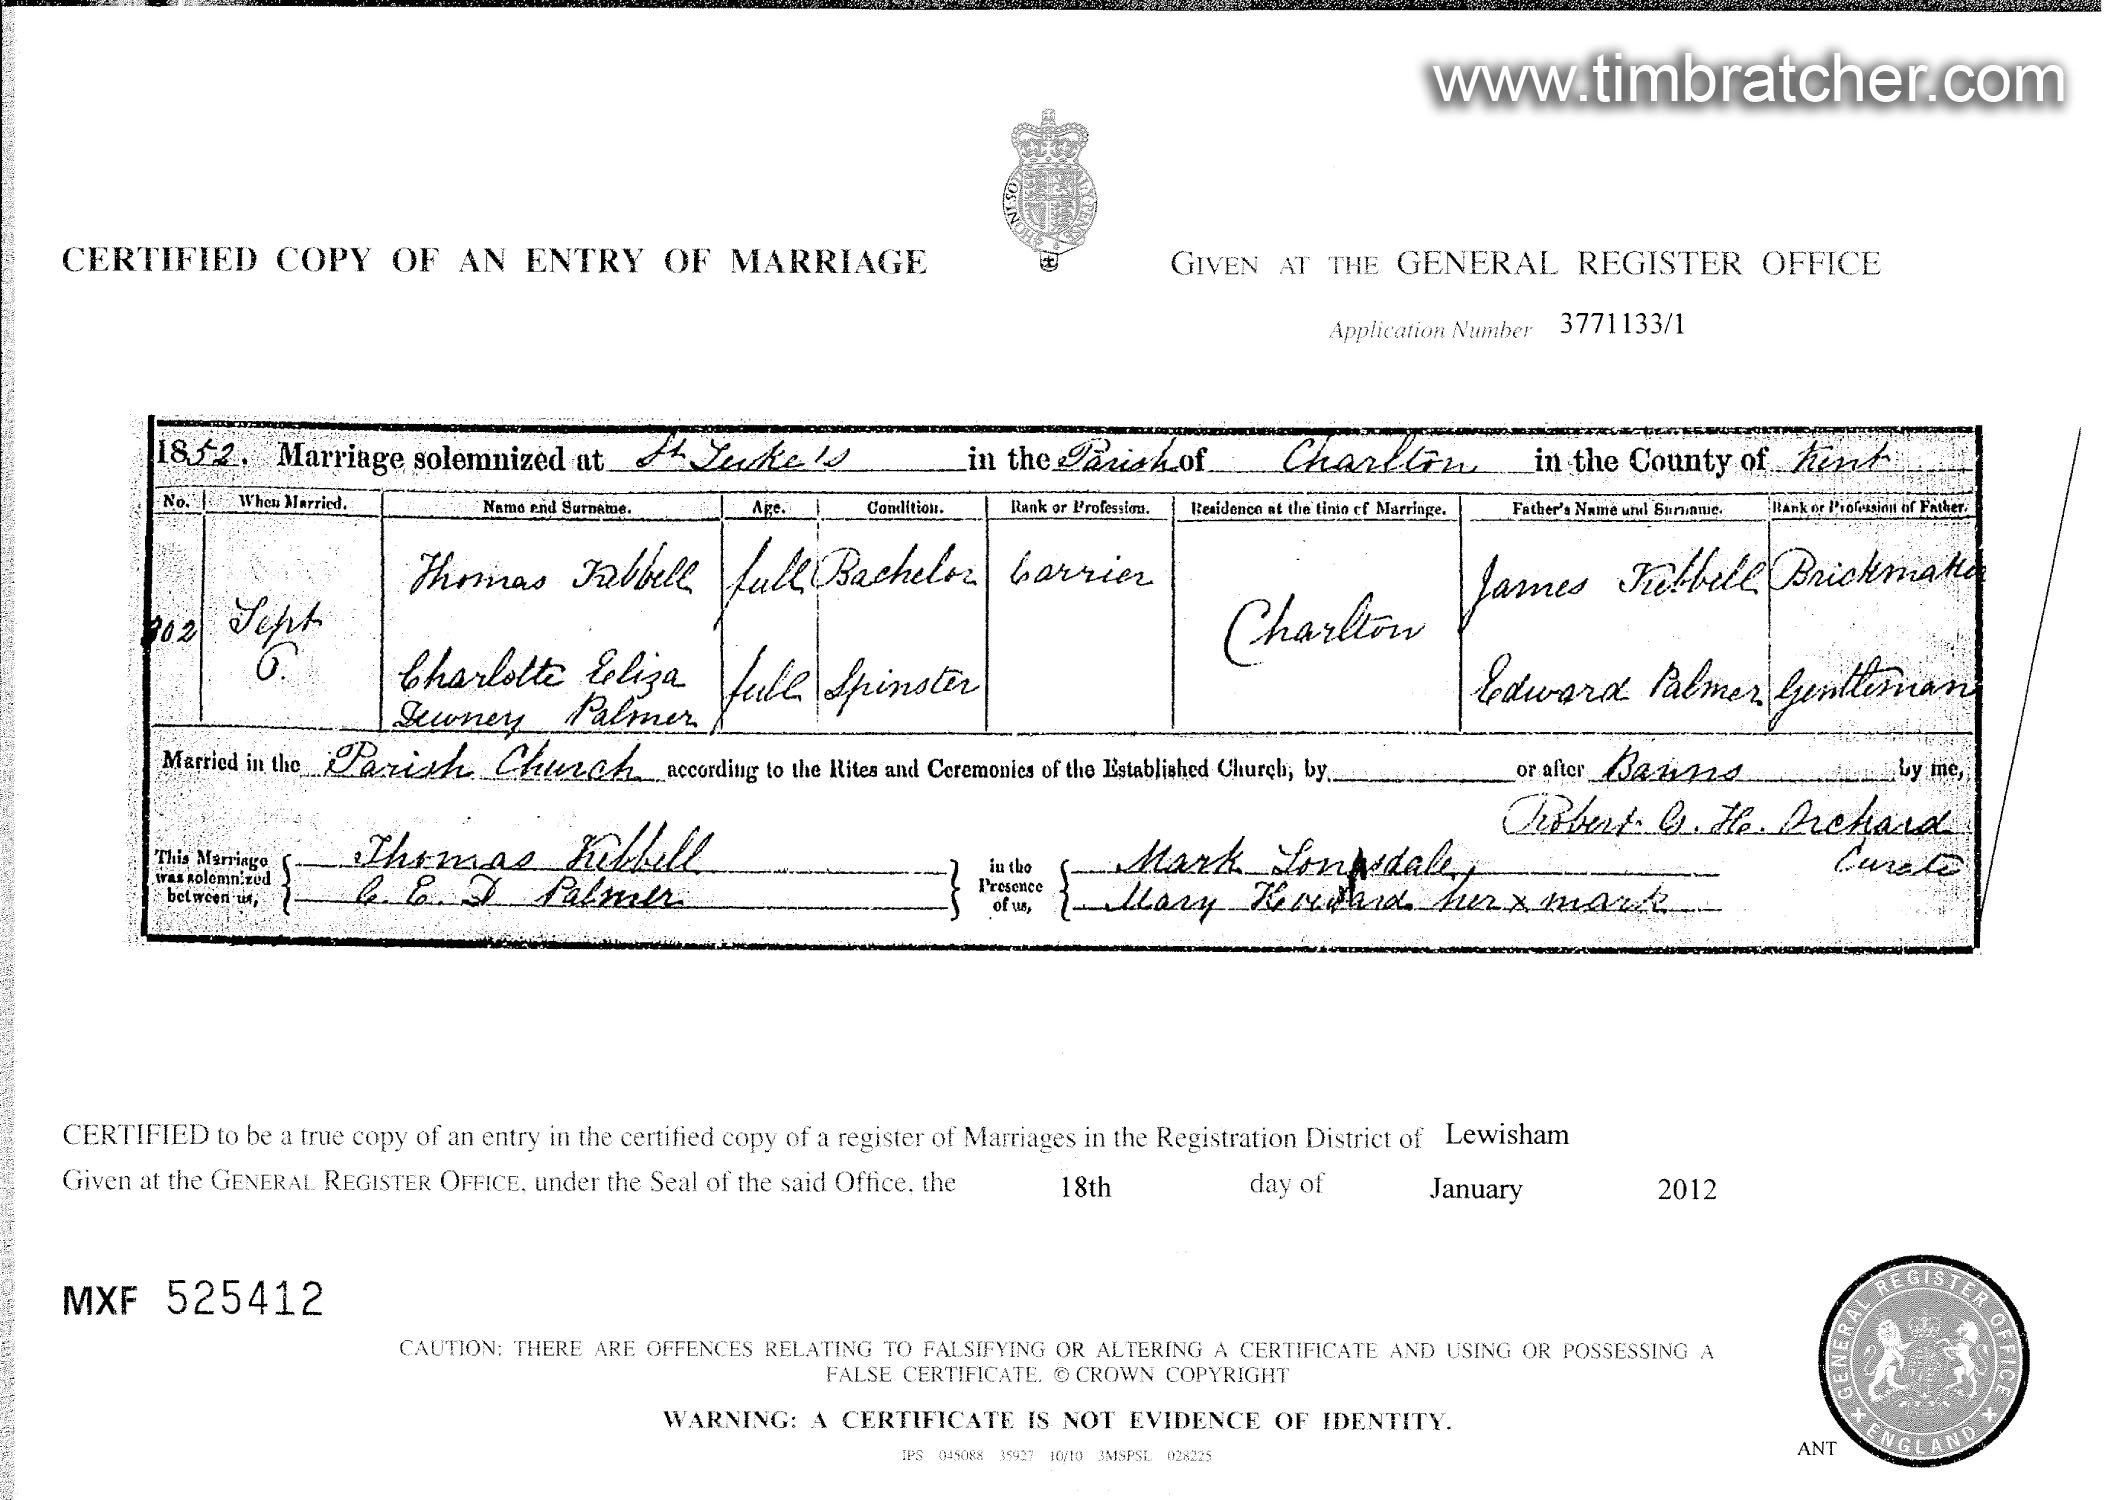 www.timbratcher.com
CERTIFIED COPY OF AN ENTRY OF MARRIAGE
GIVEN AT THE GENERAL REGISTER OFFICE
Application Number 3771133/1
1852. Marriage solemnized at St Luke's in the Parish of Charlton in the County of Kent
No. When Married. Name and Surname. Age. Condition. Rank or Profession. Residence at the time of Marriage. Father's Name and Surname. Rank or Profession of Father.
302 Sept 6.
Thomas Kibbell full Bachelor Carrier Charlton James Kibbell Brickmaker
Charlotte Eliza
Downey Palmer full Spinster Edward Palmer Gentleman
Married in the Parish Church according to the Rites and Ceremonies of the Established Church, by or after Banns by me,
Robert G. H. Orchard
Curate
This Marriage was solemnized between us,
Thomas Kibbell
C. E. D Palmer
in the Presence of us,
Mark Lonsdale,
Mary Howard her x mark
CERTIFIED to be a true copy of an entry in the certified copy of a register of Marriages in the Registration District of Lewisham
Given at the GENERAL REGISTER OFFICE, under the Seal of the said Office, the 18th day of January 2012
MXF 525412
CAUTION: THERE ARE OFFENCES RELATING TO FALSIFYING OR ALTERING A CERTIFICATE AND USING OR POSSESSING A
FALSE CERTIFICATE. © CROWN COPYRIGHT
WARNING: A CERTIFICATE IS NOT EVIDENCE OF IDENTITY.
IPS 045088 35927 10/10 3MSPSL 028225
ANT
GENERAL REGISTER OFFICE
ENGLAND